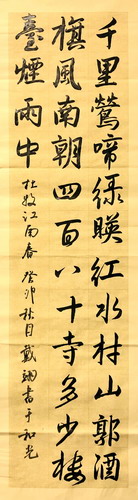 千里鶯啼綠暎紅水村山郭酒
旗風南朝四百八十寺多少樓
臺煙雨中
杜牧江南春 癸卯秋月戴翊書于和光